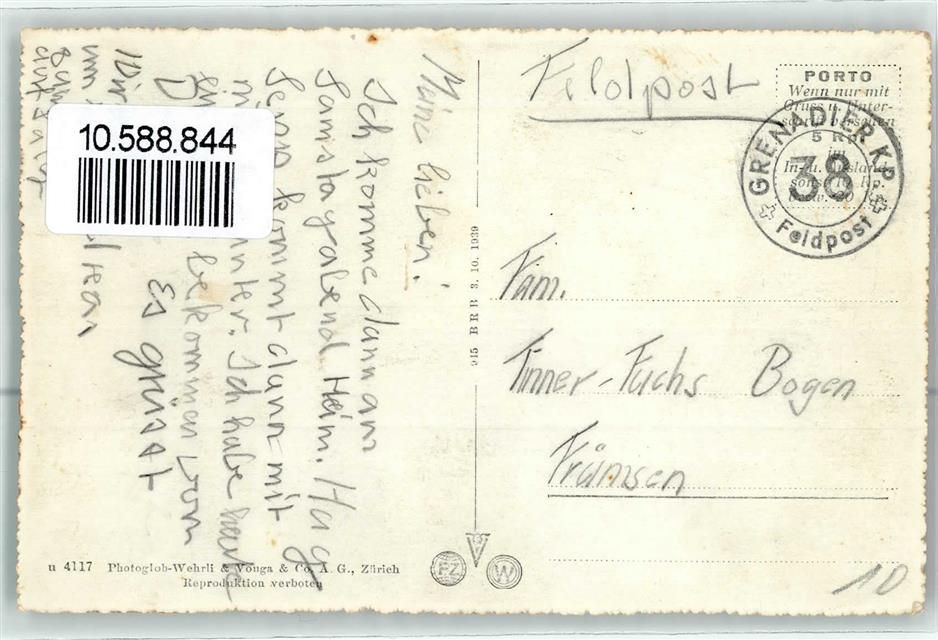 Feldpost
PORTO
Wenn nur mit
Gruss u. Unter-
schrift versehen
5 Rp.
im
In- u. Ausland
sonst 10 Rp.
bezw. 20 Rp.
GRENADIER KP.
38
Feldpost
Fam.
Tinner-Fuchs Bogen
Frümsen
10
10.588.844
Meine lieben!
Ich komme dann am
Samstagabend Heim. Hug
Sepp kommt dann mit
mir unter. Ich habe heute
bekommen von
Es grüsst
Wir
um
auf
915 BRB 3. 10. 1939
u 4117 Photoglob-Wehrli & Vouga & Co. A. G., Zürich
Reproduktion verboten
PZ
V
W